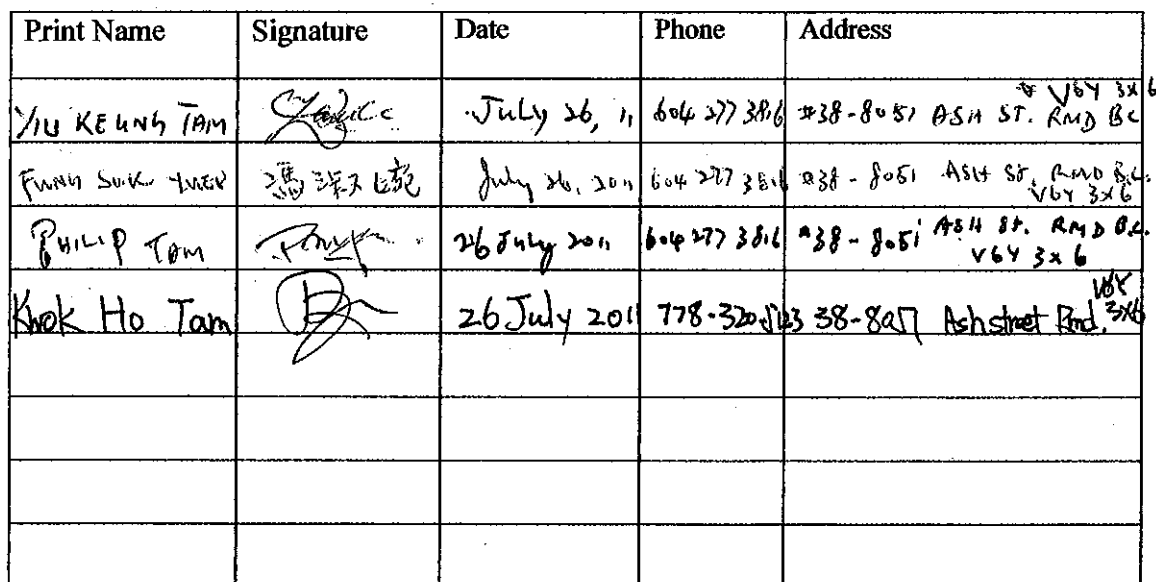 Print Name Signature Date Phone Address
YIU KEUNG TAM July 26, 11 604 277 3816 #38-8051 ASH ST. RMD BC V6Y 3X6
FUNG SUK YUEN 馮 July 26, 2011 604 277 3816 #38-8051 ASH ST, RMD B.C. V6Y 3X6
PHILIP TAM 26 July 2011 604 277 3816 #38-8051 ASH ST. RMD B.C. V6Y 3X6
Kwok Ho Tam 26 July 2011 778-320-5123 38-8051 Ash street Rmd. V6Y 3X6